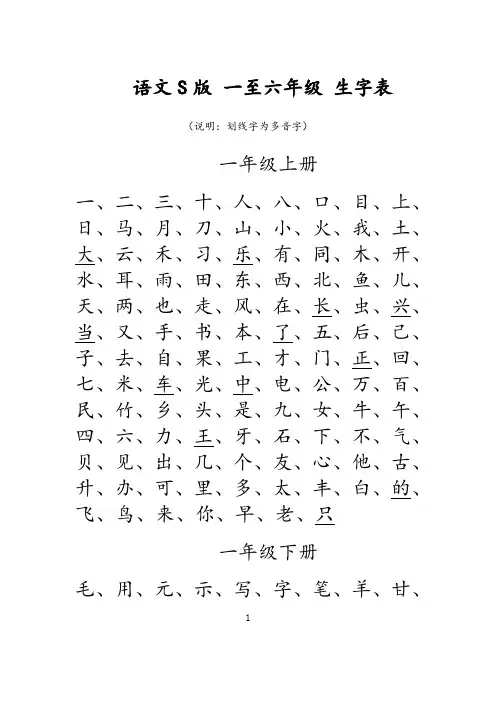 语文S版 一至六年级 生字表
（说明：划线字为多音字）
一年级上册
一、二、三、十、人、八、口、目、上、
日、马、月、刀、山、小、火、我、土、
大、云、禾、习、乐、有、同、木、开、
水、耳、雨、田、东、西、北、鱼、儿、
天、两、也、走、风、在、长、虫、兴、
当、又、手、书、本、了、五、后、己、
子、去、自、果、工、才、门、正、回、
七、米、车、光、中、电、公、万、百、
民、竹、乡、头、是、九、女、牛、午、
四、六、力、王、牙、石、下、不、气、
贝、见、出、几、个、友、心、他、古、
升、办、可、里、多、太、丰、白、的、
飞、鸟、来、你、早、老、只
一年级下册
毛、用、元、示、写、字、笔、羊、甘、
1